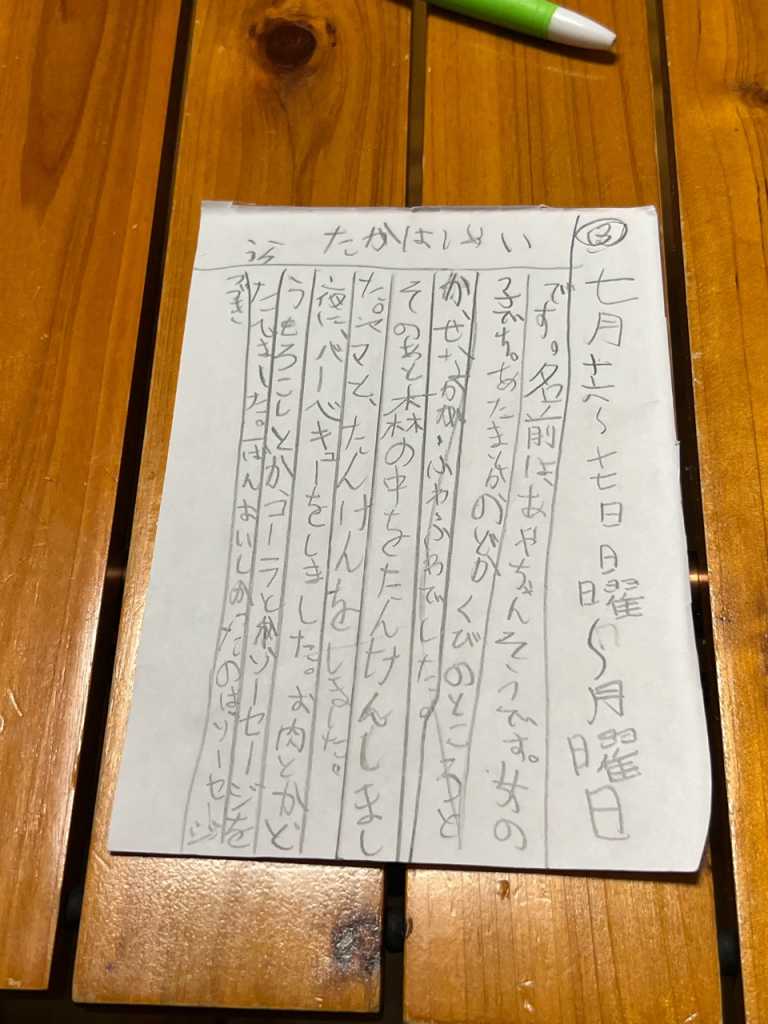 ③
七月十六〜十七日日曜日〜月曜日
たかはしめい
です。名前は、あやちゃんそうです。女の
子です。あたまとかのどとか くびのところと
か、せなかが、ふわふわでした。
そのあと森の中をたんけんしまし
た。ママと、たんけんをしました。
夜に、バーベキューをしました。お肉とかと
うもろこしとかコーラとかソーセージを
たべました。一ばんおいしかったのはソーセージ
でき